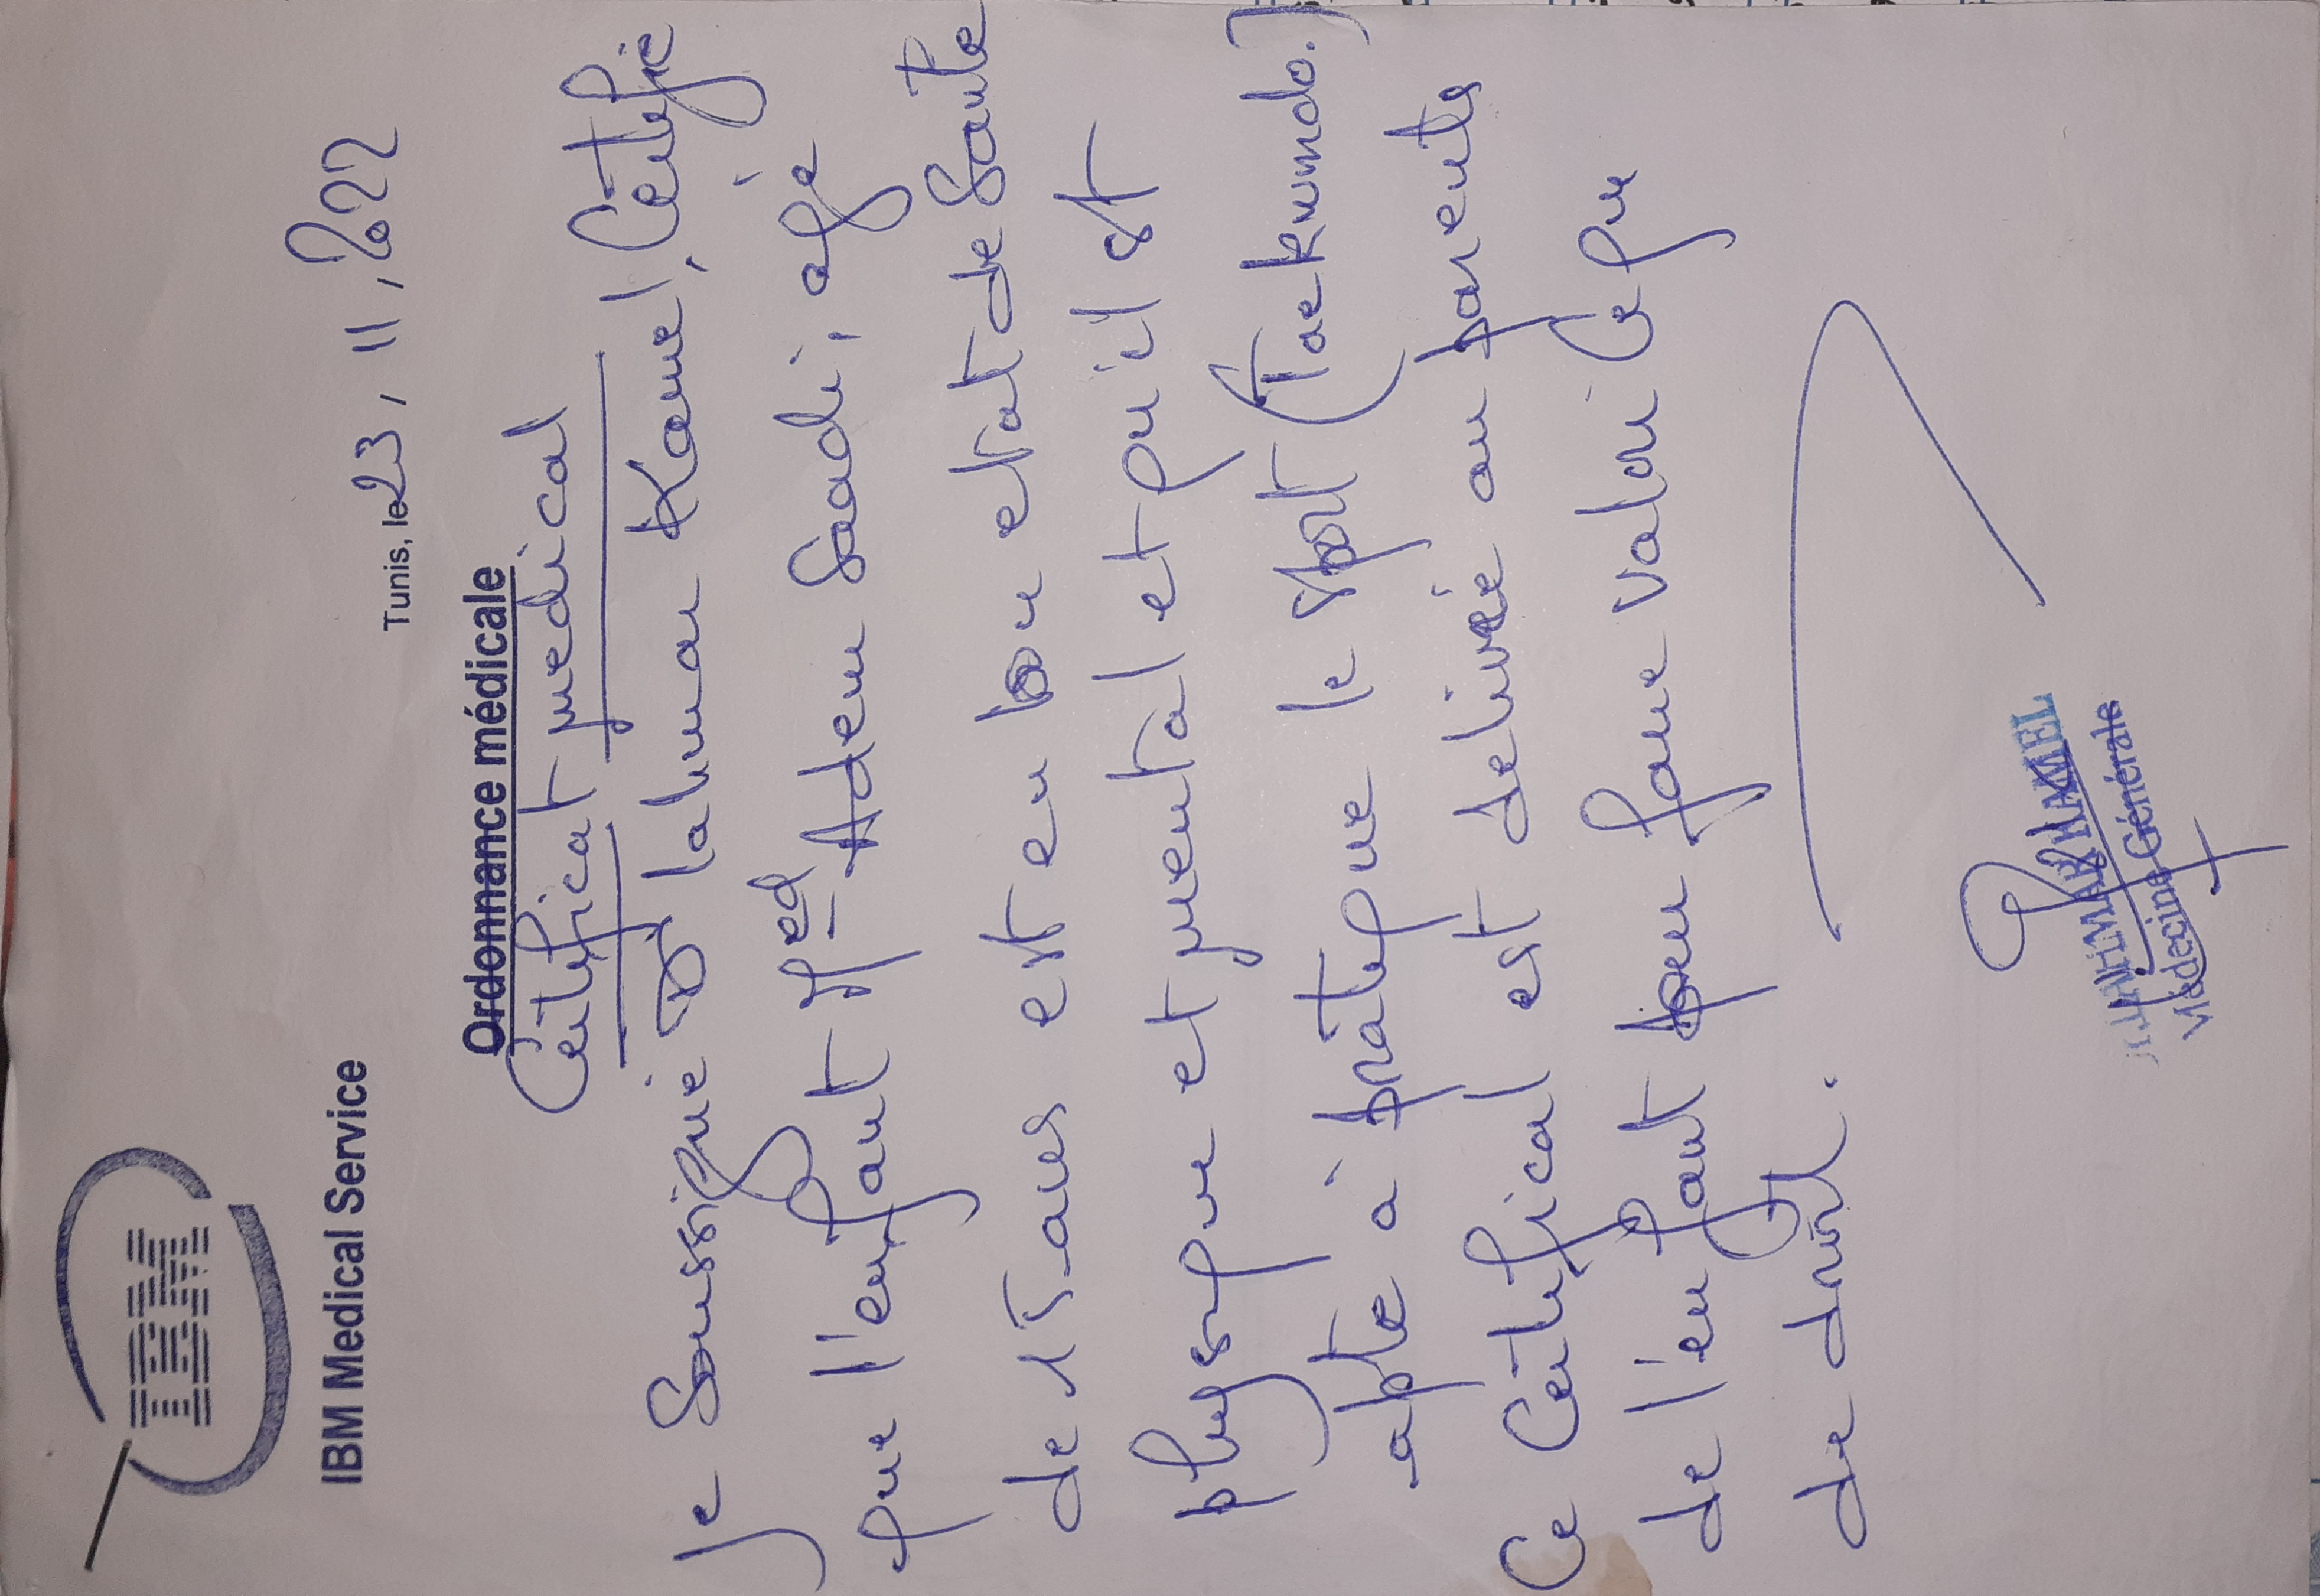 IBM
IBM Medical Service
Tunis, le 23, 11, 2022
Ordonnance médicale
Certificat medical
Je Soussigné Dr lahmar Kamel, Certifie
que l'enfant Med Adem Saadi, agé
de 15 ans est en bon etat de Sante
physique et mental et qu'il est
apte à pratique le sport (Taekwondo.)
Ce Certifical est delivrée au parents
de l'enfant pour faire valoir ce que
de droit.
KAMEL
Médecine Générale